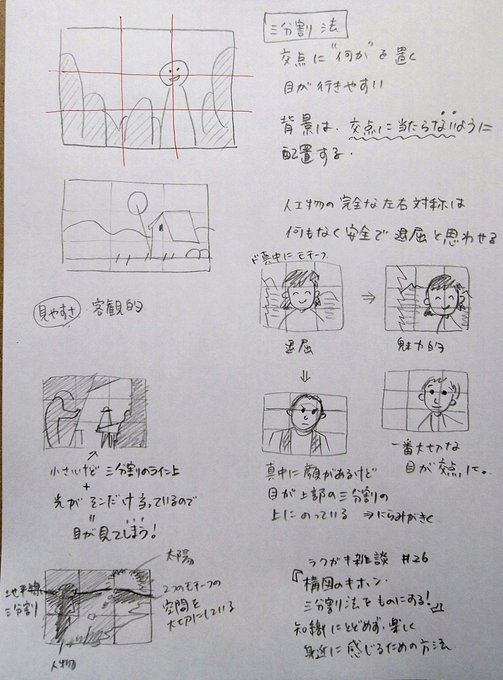 三分割法
交点に“何か”を置く
目が行きやすい
背景は、交点に当たらないように
配置する。
人工物の完全な左右対称は
何もなく安全で退屈と思わせる
ド真中にモチーフ
⇒
退屈
魅力的
⇓
見やすさ 客観的
一番大切な
目が交点に。
真中に顔があるけど
目が上部の三分割の
上にのっている ⇒にらみがきく
小さいけど三分割のライン上
+
光がそこだけ当っているので
〃
目が見てしまう!
太陽
地平線
三分割
2つのモチーフの
空間を
大切にしている
人物
ラクガキ雑談 #26
『構図のキホン・
三分割法をものにする!』
知識にとどめず、楽しく
身近に感じるための方法